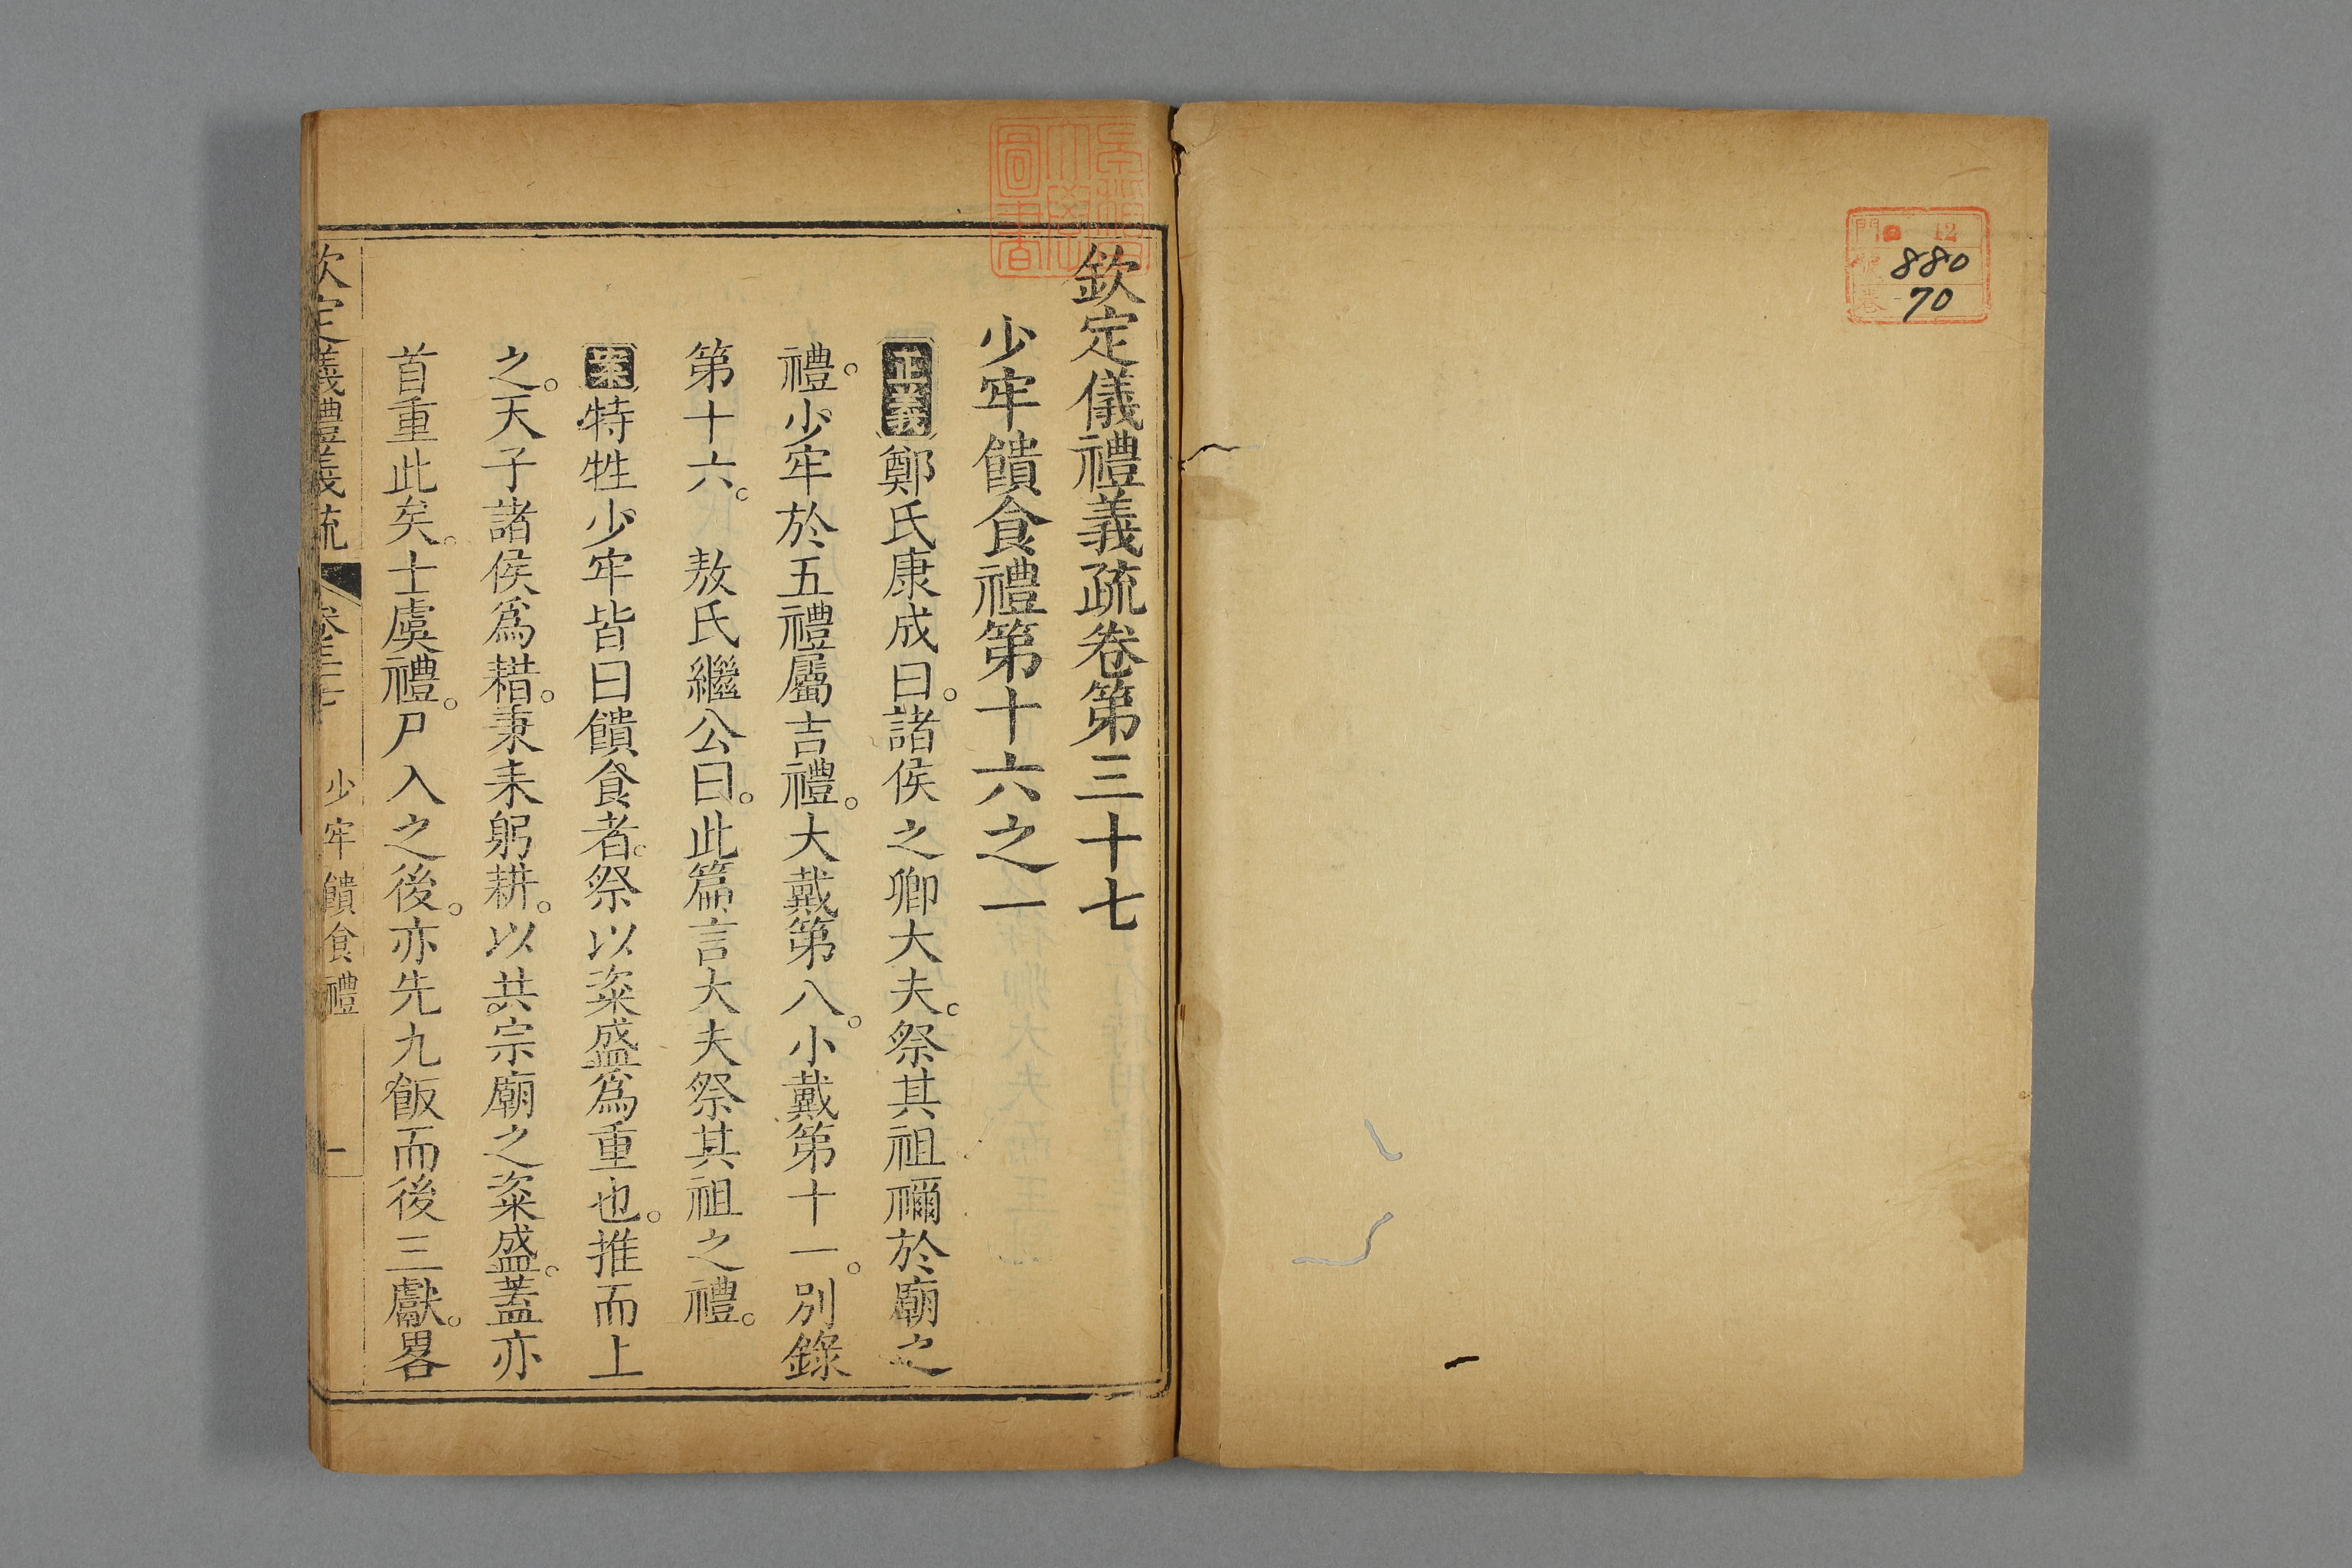 門 12
880
70
欽定儀禮義疏卷第三十七
少牢饋食禮第十六之一
正義鄭氏康成曰。諸侯之卿大夫。祭其祖禰於廟之
禮。少牢於五禮屬吉禮。大戴第八。小戴第十一。別錄
第十六。 敖氏繼公曰。此篇言大夫祭其祖之禮。
案特牲少牢皆曰饋食者。祭以粢盛爲重也。推而上
之。天子諸侯爲耤。秉耒躬耕。以共宗廟之粢盛。蓋亦
首重此矣。士虞禮。尸入之後。亦先九飯而後三獻。畧
欽定儀禮義疏 卷三十七 少牢饋食禮 一
圖書